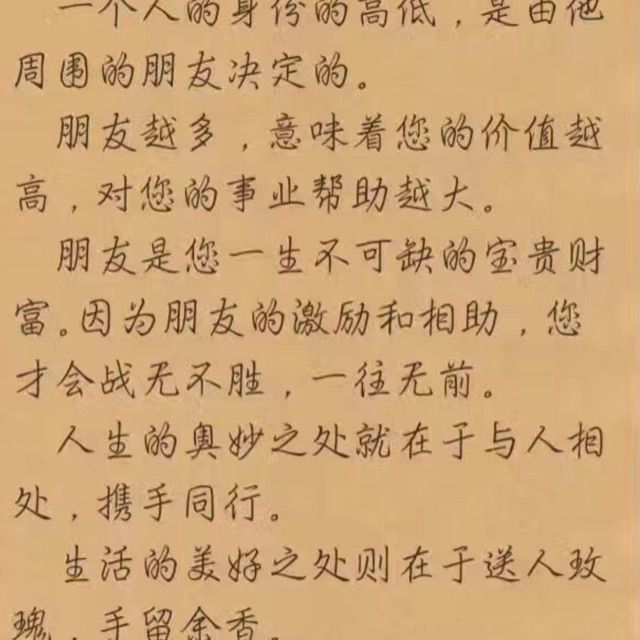 一个人的身份的高低，是由他
周围的朋友决定的。
朋友越多，意味着您的价值越
高，对您的事业帮助越大。
朋友是您一生不可缺的宝贵财
富。因为朋友的激励和相助，您
才会战无不胜，一往无前。
人生的奥妙之处就在于与人相
处，携手同行。
生活的美好之处则在于送人玫
瑰，手留余香。